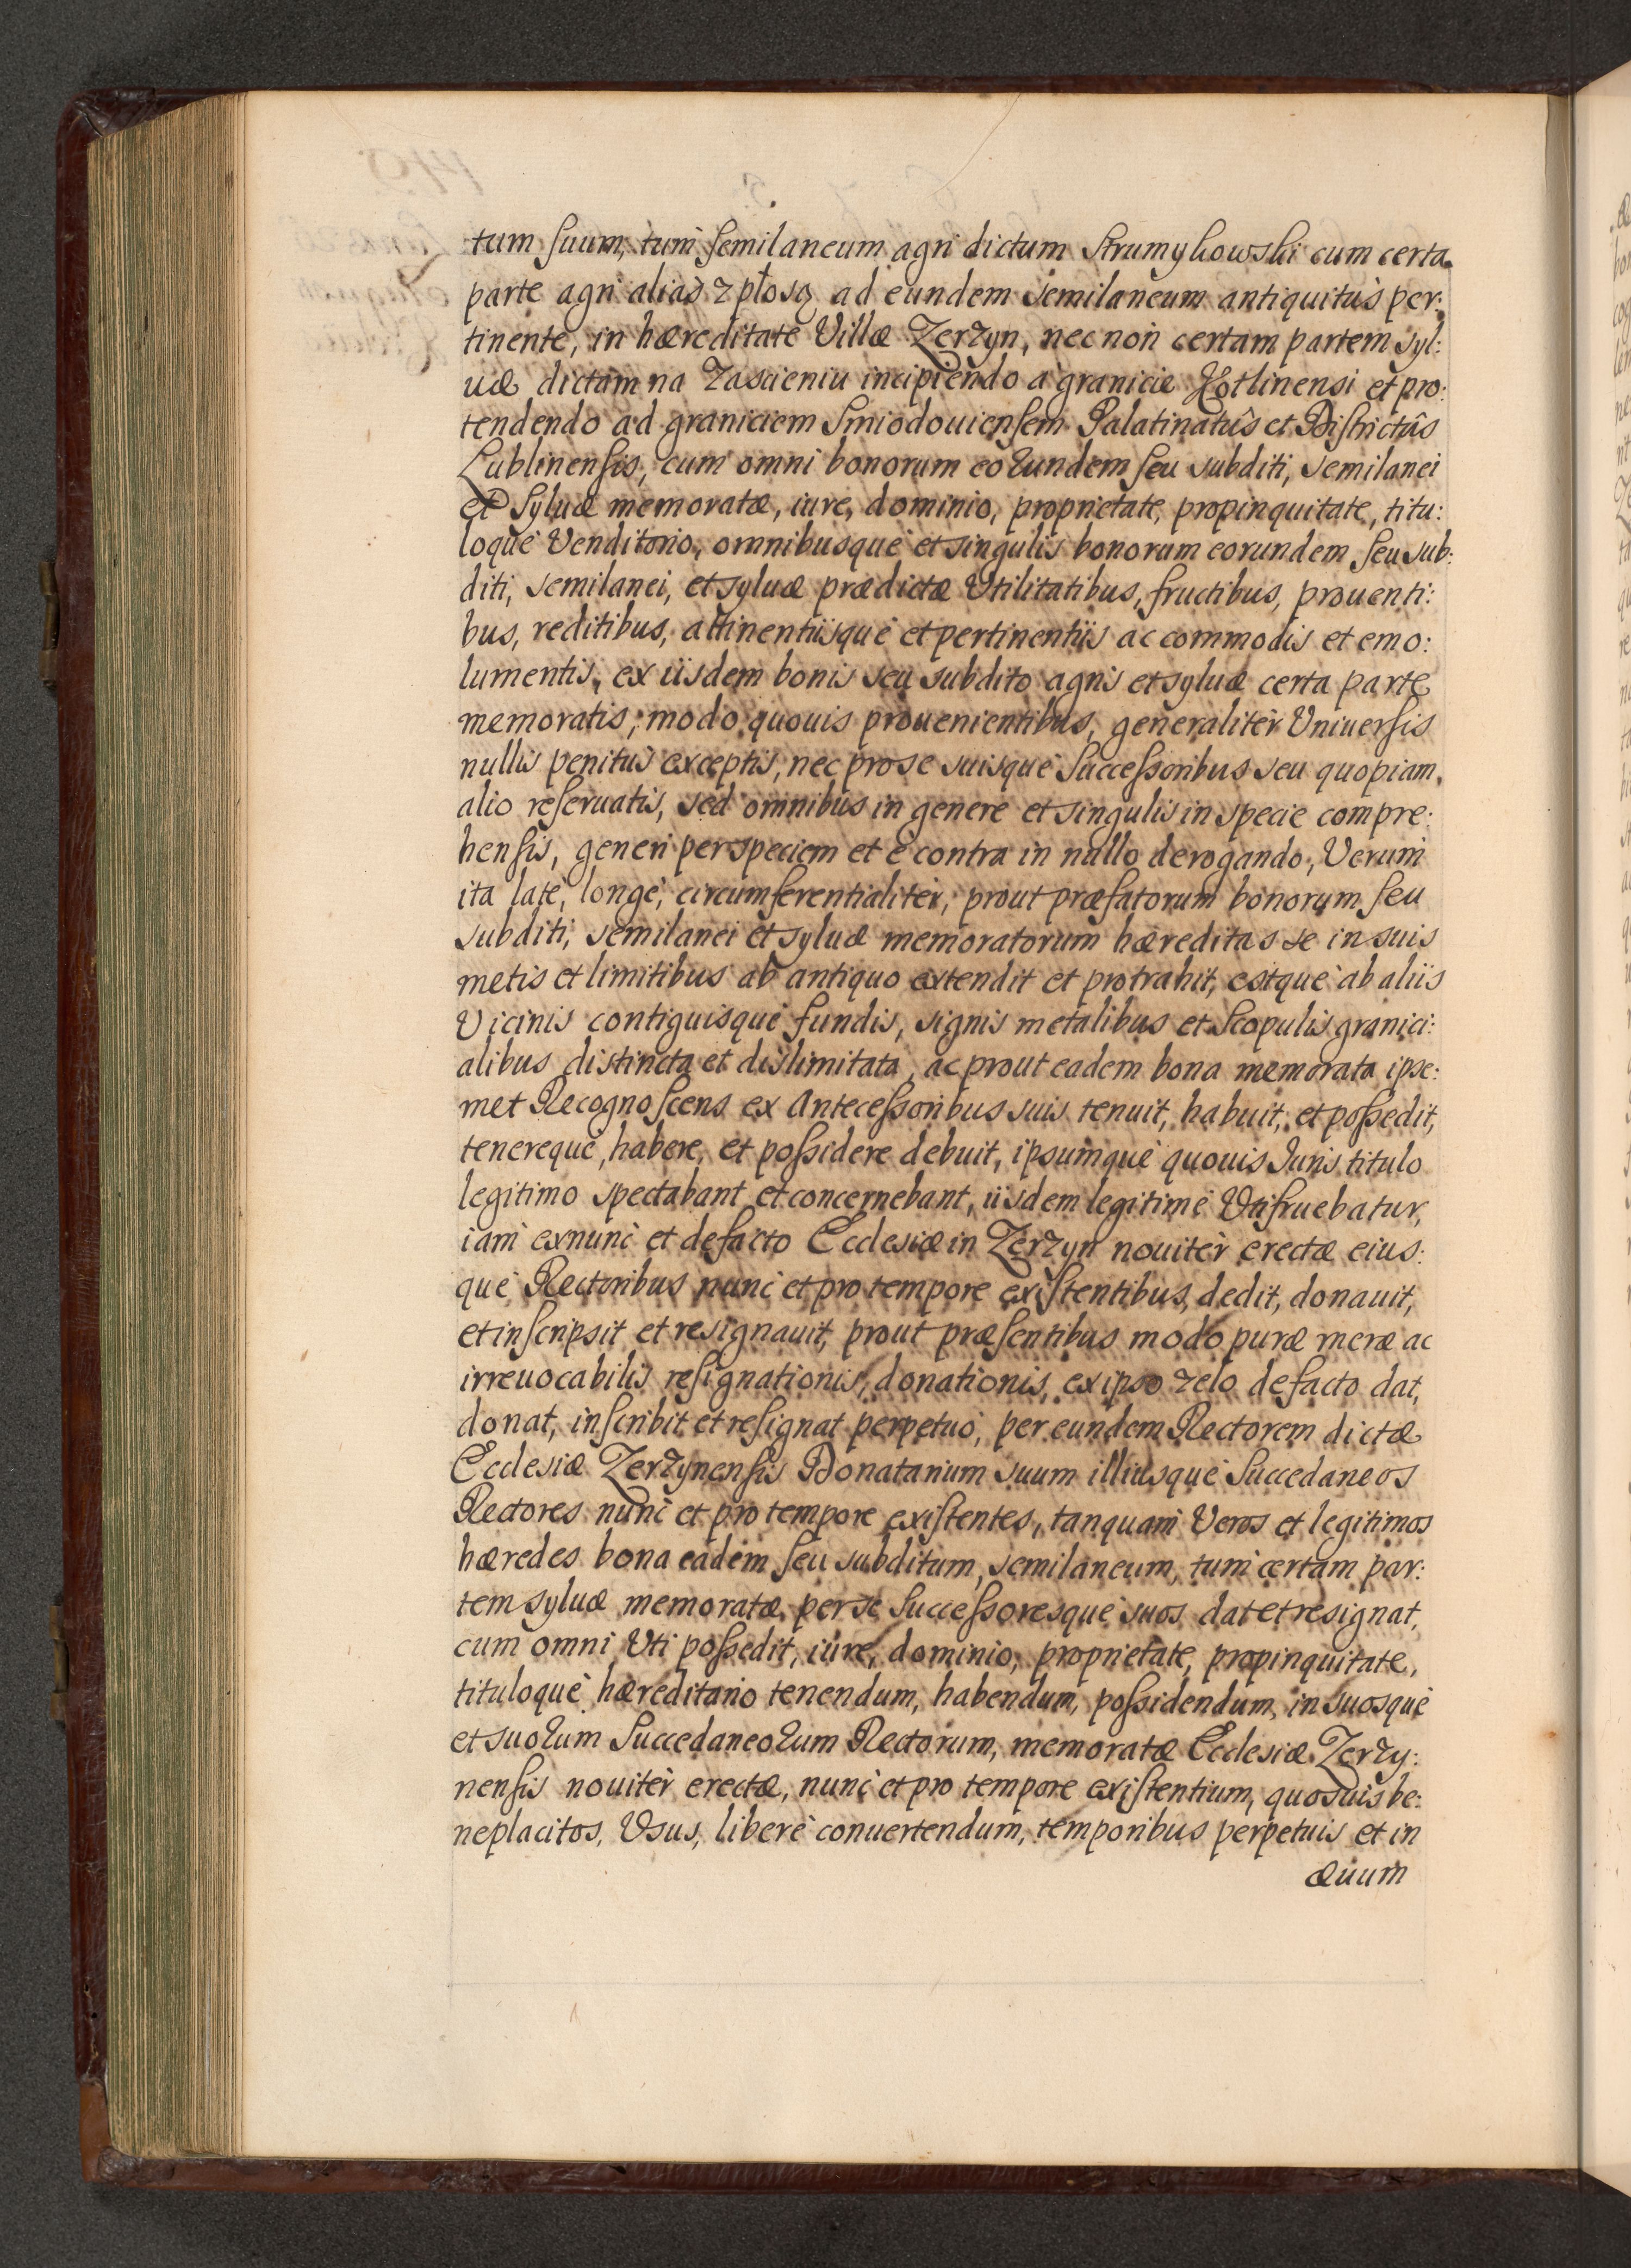 tum suum, tum semilaneum agri dictum Strumyhowski cum certa
parte agri alias z płosą ad eundem semilaneum antiquitus per:
tinente, in hæreditate Villæ Zerzyn, nec non certam partem syl:
uæ dictam na Zascieniu incipiendo a granicie Kotlinensi et pro:
tendendo ad graniciem Smiodouiensem Palatinatûs et Districtûs
Lublinensis, cum omni bonorum eorundem seu subditi, semilanei
et Syluæ memoratæ, iure, dominio, proprietate, propinquitate, titu:
loque Venditorio, omnibusque et singulis bonorum eorundem seu sub:
diti, semilanei, et syluæ prædictæ Vtilitatibus, fructibus, prouenti:
bus, reditibus, attinentiisque et pertinentiis ac commodis et emo:
lumentis, ex iisdem bonis seu subdito agris et syluæ certa parte
memoratis, modo quouis prouenientibus, generaliter Vniuersis
nullis penitus exceptis, nec pro se suisque Successoribus seu quopiam
alio reseruatis, sed omnibus in genere et singulis in specie compre:
hensis, generi per speciem et e contra in nullo derogando, Verum
ita late, longe, circumferentialiter, prout præfatorum bonorum seu
subditi, semilanei et syluæ memoratorum hæreditas se in suis
metis et limitibus ab antiquo extendit et protrahit, estque ab aliis
Vicinis contiguisque fundis, signis metalibus et Scopulis granici:
alibus distincta et dislimitata, ac prout eadem bona memorata ipse:
met Recognoscens ex Antecessoribus suis tenuit, habuit, et possedit,
tenereque, habere, et possidere debuit, ipsumque quouis Juris titulo
legitimo spectabant et concernebant, iisdem legitime Vtifruebatur,
iam exnunc et defacto Ecclesiæ in Zerzyn nouiter erectæ eius:
que Rectoribus nunc et pro tempore existentibus, dedit, donauit,
et inscripsit et resignauit, prout præsentibus modo puræ meræ ac
irreuocabilis resignationis, donationis, ex ipso zelo defacto dat,
donat, inscribit et resignat perpetuo, per eundem Rectorem dictæ
Ecclesiæ Zerzynensis Donatarium suum illiusque Succedaneos
Rectores nunc et pro tempore existentes, tanquam Veros et legitimos
hæredes bona eadem seu subditum, semilaneum, tum certam par:
tem syluæ memoratæ, per se Successoresque suos dat et resignat,
cum omni Vti possedit, iure, dominio, proprietate, propinquitate,
tituloque hæreditario tenendum, habendum, possidendum, in suosque
et suorum Succedaneorum Rectorum, memoratæ Ecclesiæ Zerzy:
nensis nouiter erectæ, nunc et pro tempore existentium, quosuis be:
neplacitos, Vsus, libere conuertendum, temporibus perpetuis et in
æuum